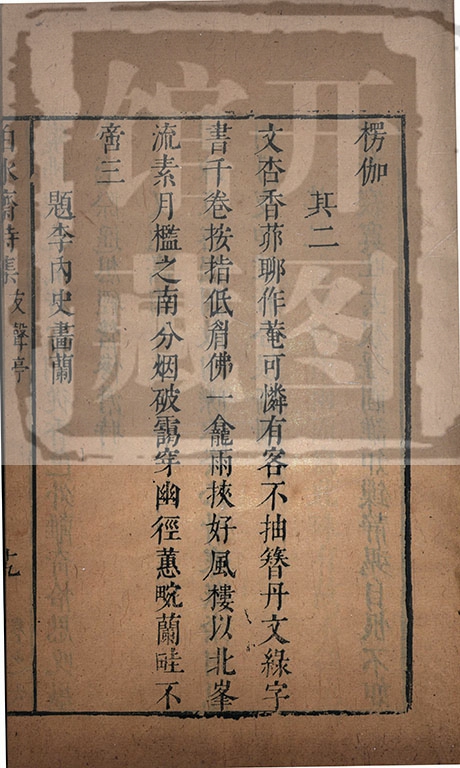 楞伽
其二
文杏香茆聊作菴可憐有客不抽簪丹文綠字
書千卷按指低眉佛一龕雨挾好風樓以北峯
流素月檻之南分烟破靄穿幽徑蕙畹蘭畦不
啻三
題李內史畫蘭
白冰齋詩集 友聲亭 十九
开图馆藏